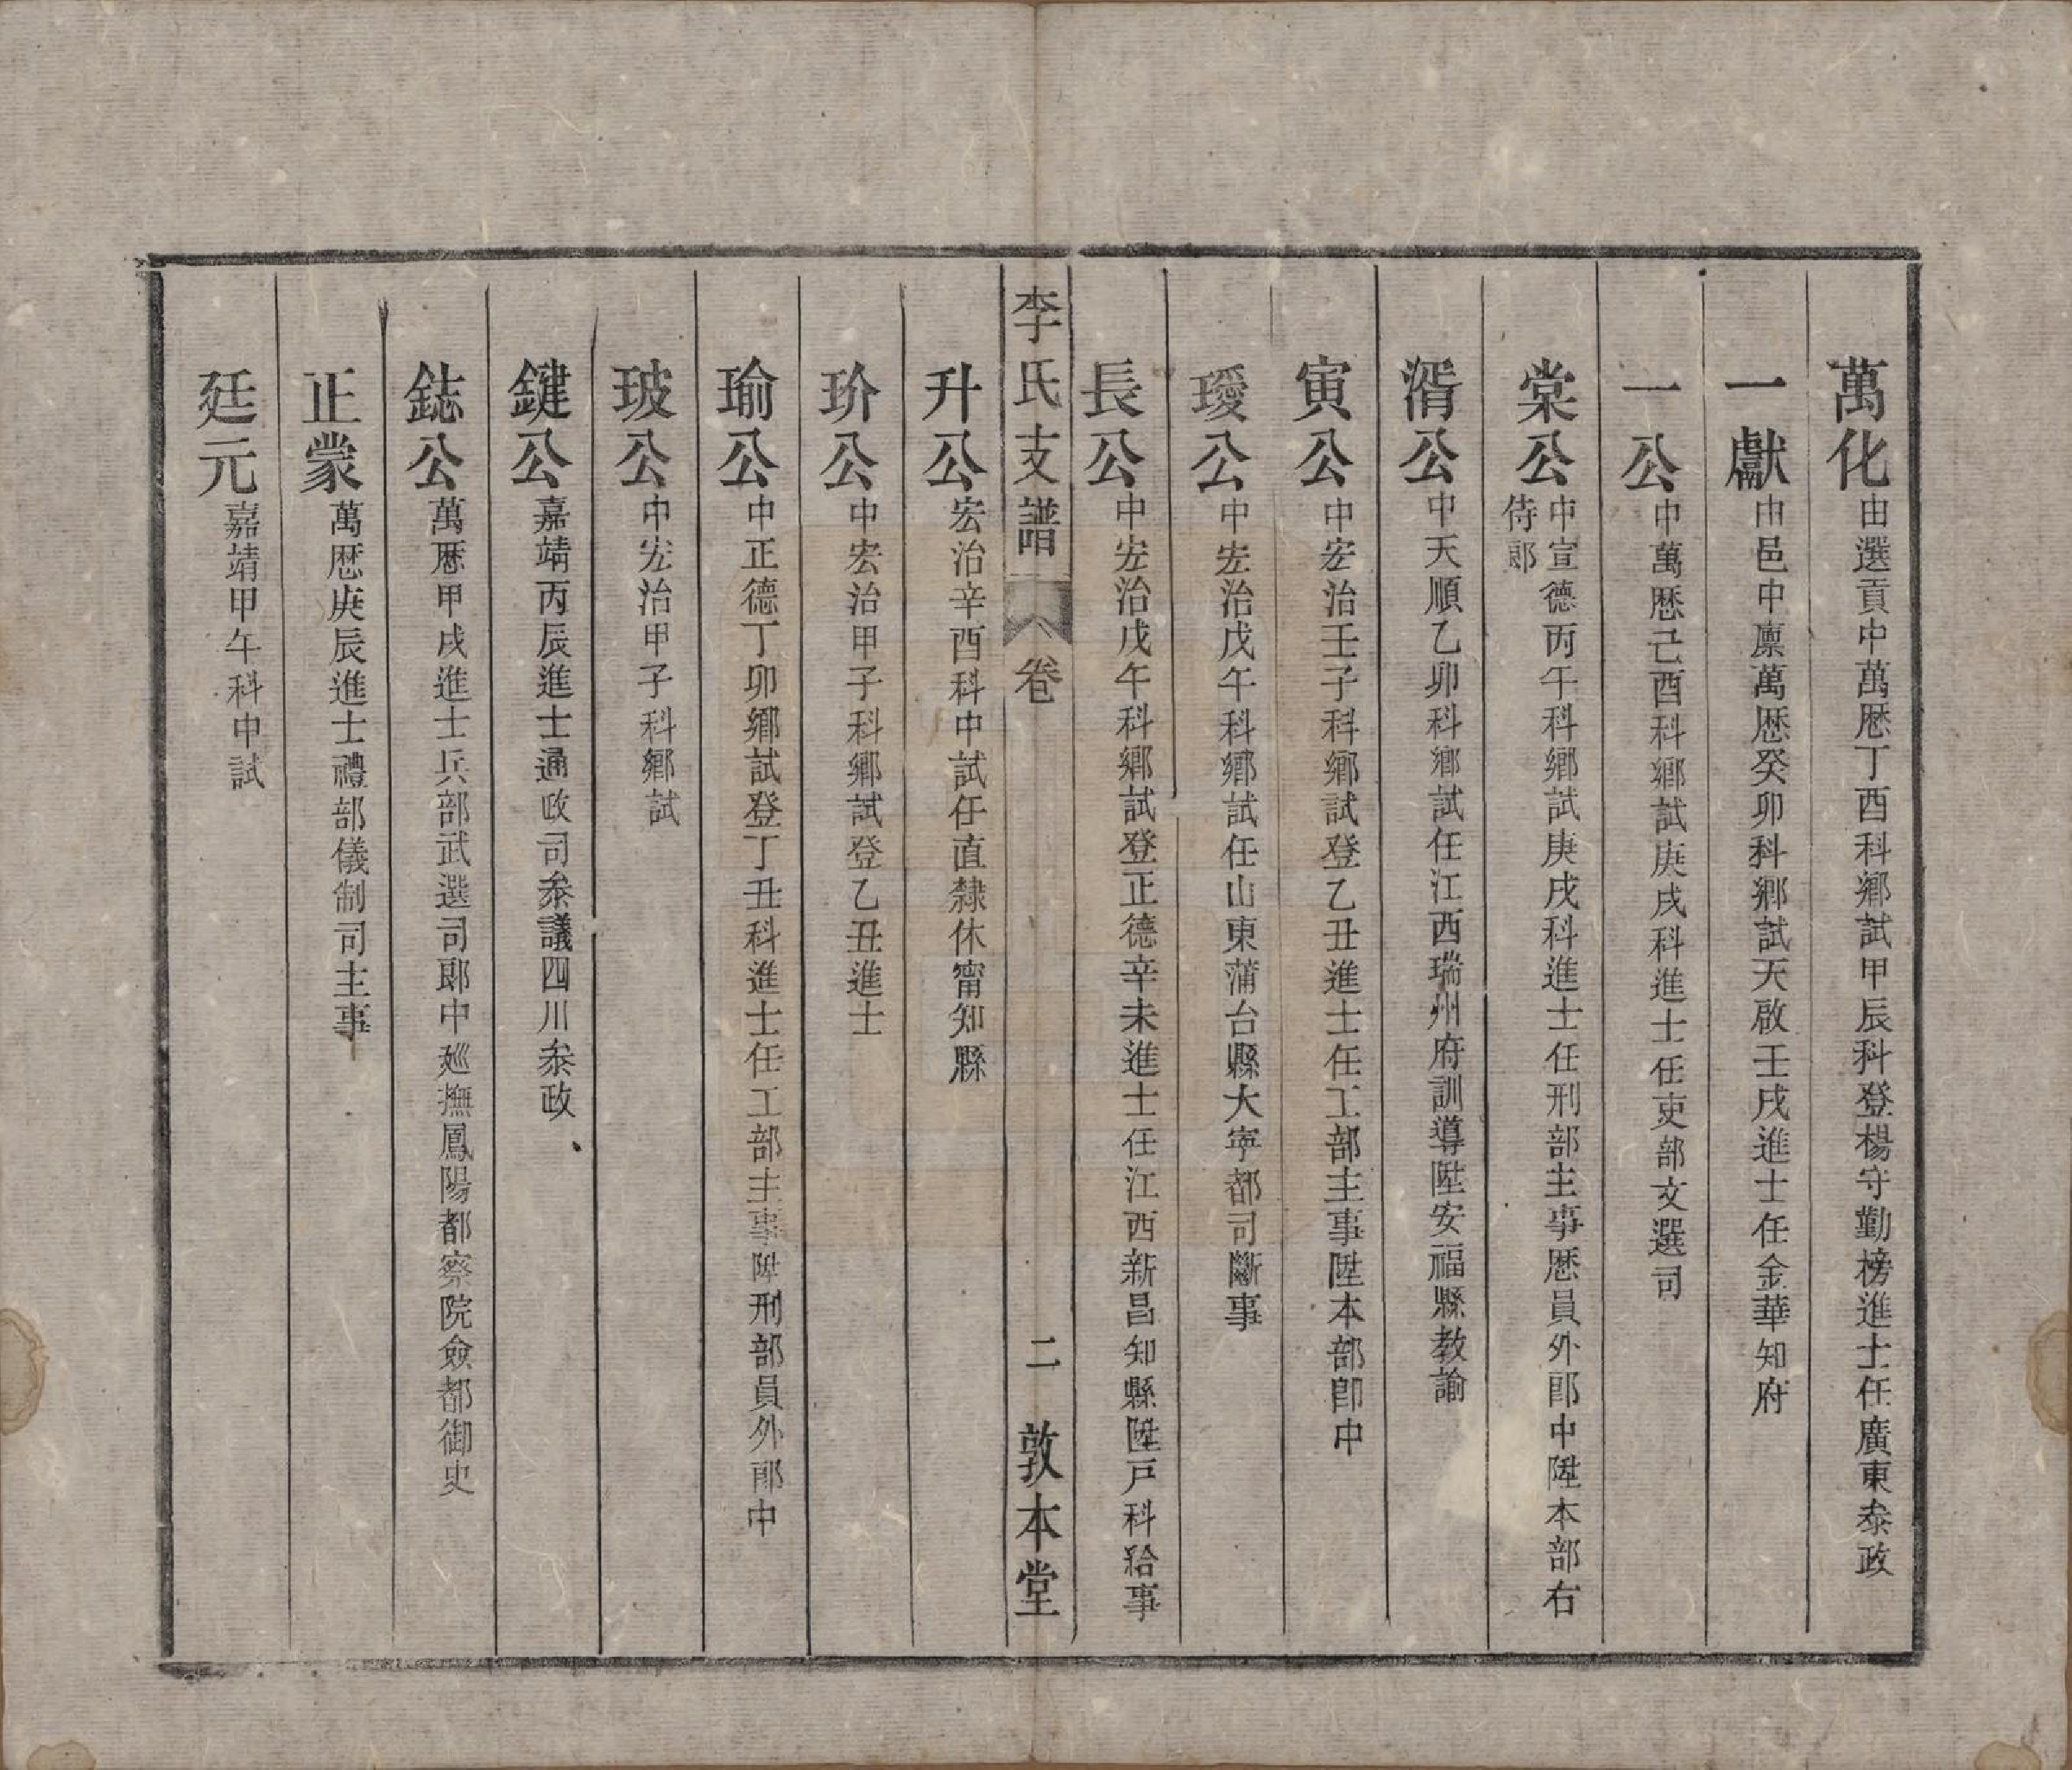 萬化由選貢中萬厯丁酉科鄉試甲辰科登楊守勤榜進士任廣東叅政
一獻由邑中廩萬厯癸卯科鄉試天啟壬戌進士任金華知府
一公中萬厯己酉科鄉試庚戌科進士任吏部文選司
棠公中宣德丙午科鄉試庚戌科進士任刑部主事厯員外郎中陞本部右
侍郎
湑公中天順乙卯科鄉試任江西瑞州府訓導陞安福縣教諭
寅公中宏治壬子科鄉試登乙丑進士任工部主事陞本部郎中
璦公中宏治戊午科鄉試任山東蒲台縣大寜都司斷事
長公中宏治戊午科鄉試登正德辛未進士任江西新昌知縣陞戸科給事
李氏支譜 卷 二 敦本堂
升公宏治辛酉科中試任直隸休甯知縣
玠公中宏治甲子科鄉試登乙丑進士
瑜公中正德丁卯鄉試登丁丑科進士任工部主事陞刑部員外郎中
玻公中宏治甲子科鄉試
鍵公嘉靖丙辰進士通政司叅議四川叅政
鋕公萬厯甲戌進士兵部武選司郎中廵撫鳳陽都察院僉都御史
正蒙萬厯庚辰進士禮部儀制司主事
廷元嘉靖甲午科中試